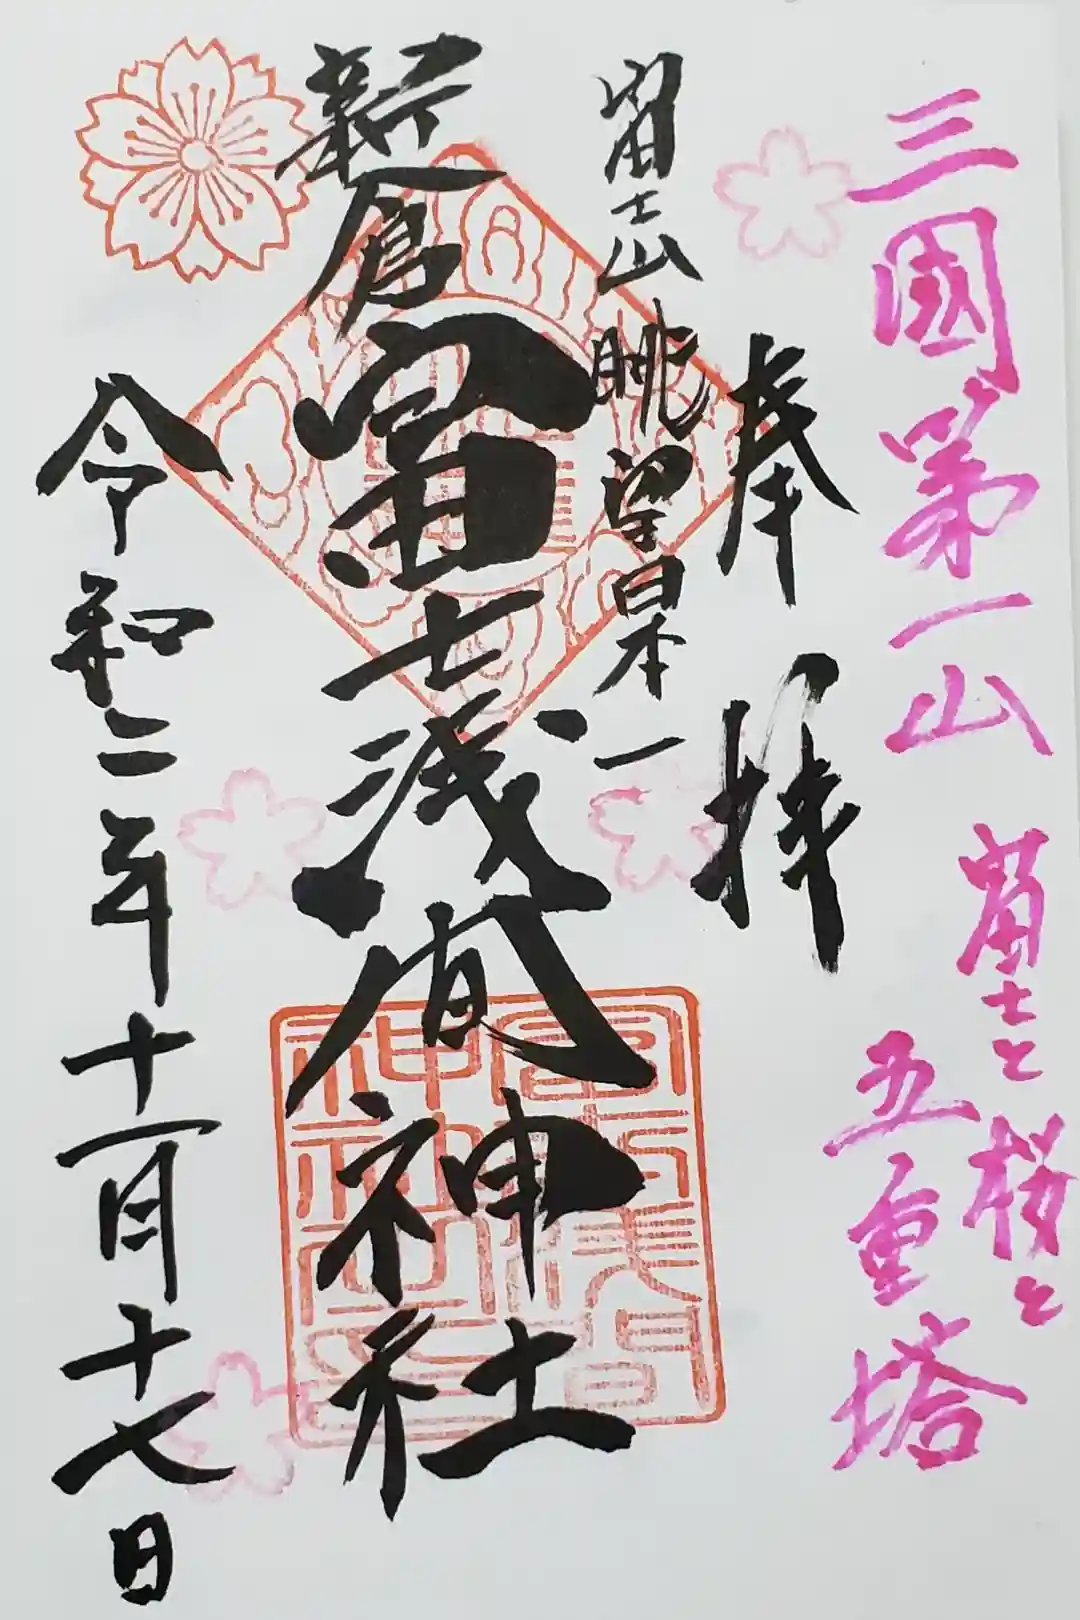 三國第一山
冨士と桜と
五重塔
奉拝
冨士山眺望日本一
新倉冨士浅間神社
令和二年十一月十七日